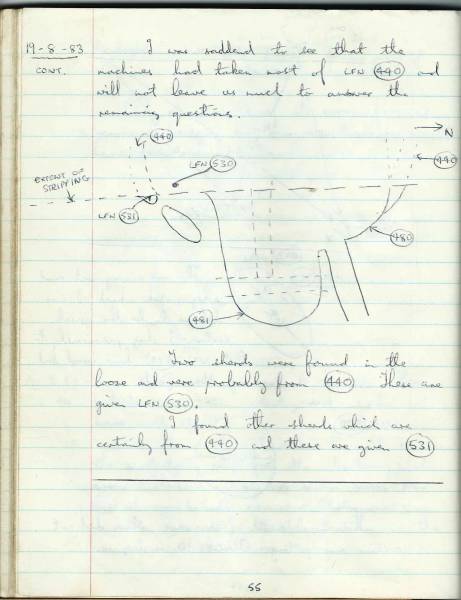 19-8-83
CONT.
I was saddend to see that the
machines had taken most of LFN 440 and
will not leave us much to answer the
remaining questions.
440
N
LFN 530
440
EXTENT OF
STRIPPING
LFN 531
480
481
Two sherds were found in the
loose and were probably from 440 These are
given LFN 530.
I found other sherds which are
certainly from 440 and these are given 531
55